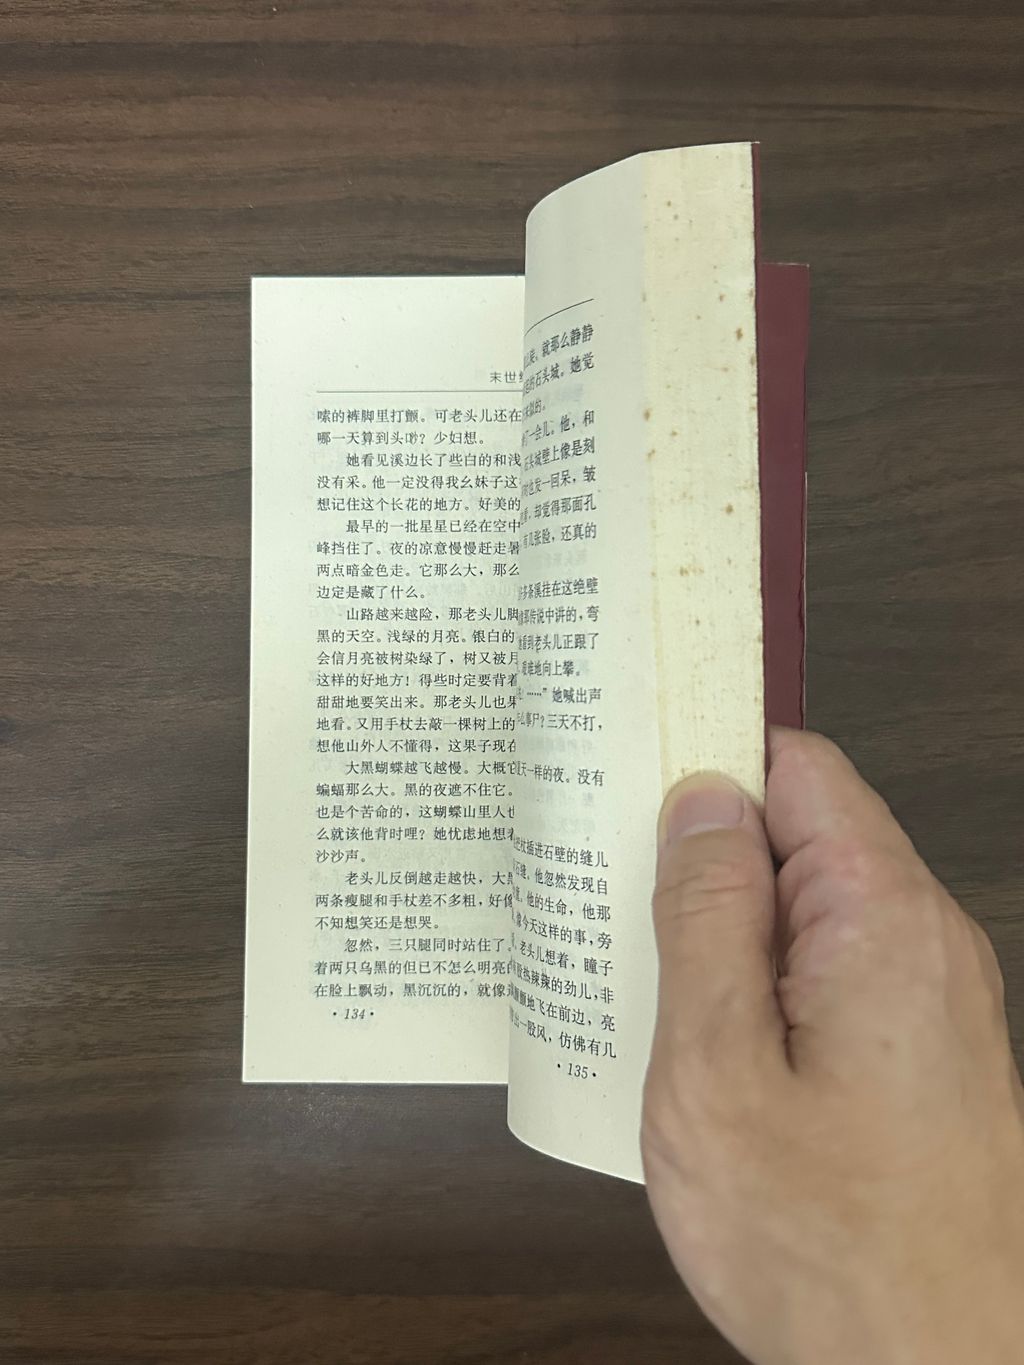 末世
嗦的裤脚里打颤。可老头儿还在
哪一天算到头吵？少妇想。
她看见溪边长了些白的和浅
没有采。他一定没得我幺妹子这
想记住这个长花的地方。好美的
最早的一批星星已经在空中
峰挡住了。夜的凉意慢慢赶走暑
两点暗金色走。它那么大，那么
边定是藏了什么。
山路越来越险，那老头儿脚
黑的天空。浅绿的月亮。银白的
会信月亮被树染绿了，树又被月
这样的好地方！得些时定要背着
甜甜地要笑出来。那老头儿也果
地看。又用手杖去敲一棵树上的
想他山外人不懂得，这果子现在
大黑蝴蝶越飞越慢。大概它
蝙蝠那么大。黑的夜遮不住它。
也是个苦命的，这蝴蝶山里人也
么就该他背时哩？她忧虑地想着
沙沙声。
老头儿反倒越走越快，大
两条瘦腿和手杖差不多粗，好像
不知想笑还是想哭。
忽然，三只腿同时站住了。
着两只乌黑的但已不怎么明亮的
在脸上飘动，黑沉沉的，就像
·134·
就那么静静
的石头城。她觉
似的。
了一会儿。他，和
石头城壁上像是刻
也发一回呆，皱
却觉得那面孔
有几张脸，还真的
多条溪挂在这绝壁
像那传说中讲的，弯
看到老头儿正跟了
艰难地向上攀。
……”她喊出声
么事尸？三天不打，
天一样的夜。没有
把杖插进石壁的缝儿
石缝。他忽然发现自
他的生命，他那
像今天这样的事，旁
老头儿想着，瞳子
股热辣辣的劲儿，非
颤颤地飞在前边，亮
出一股风，仿佛有几
·135·